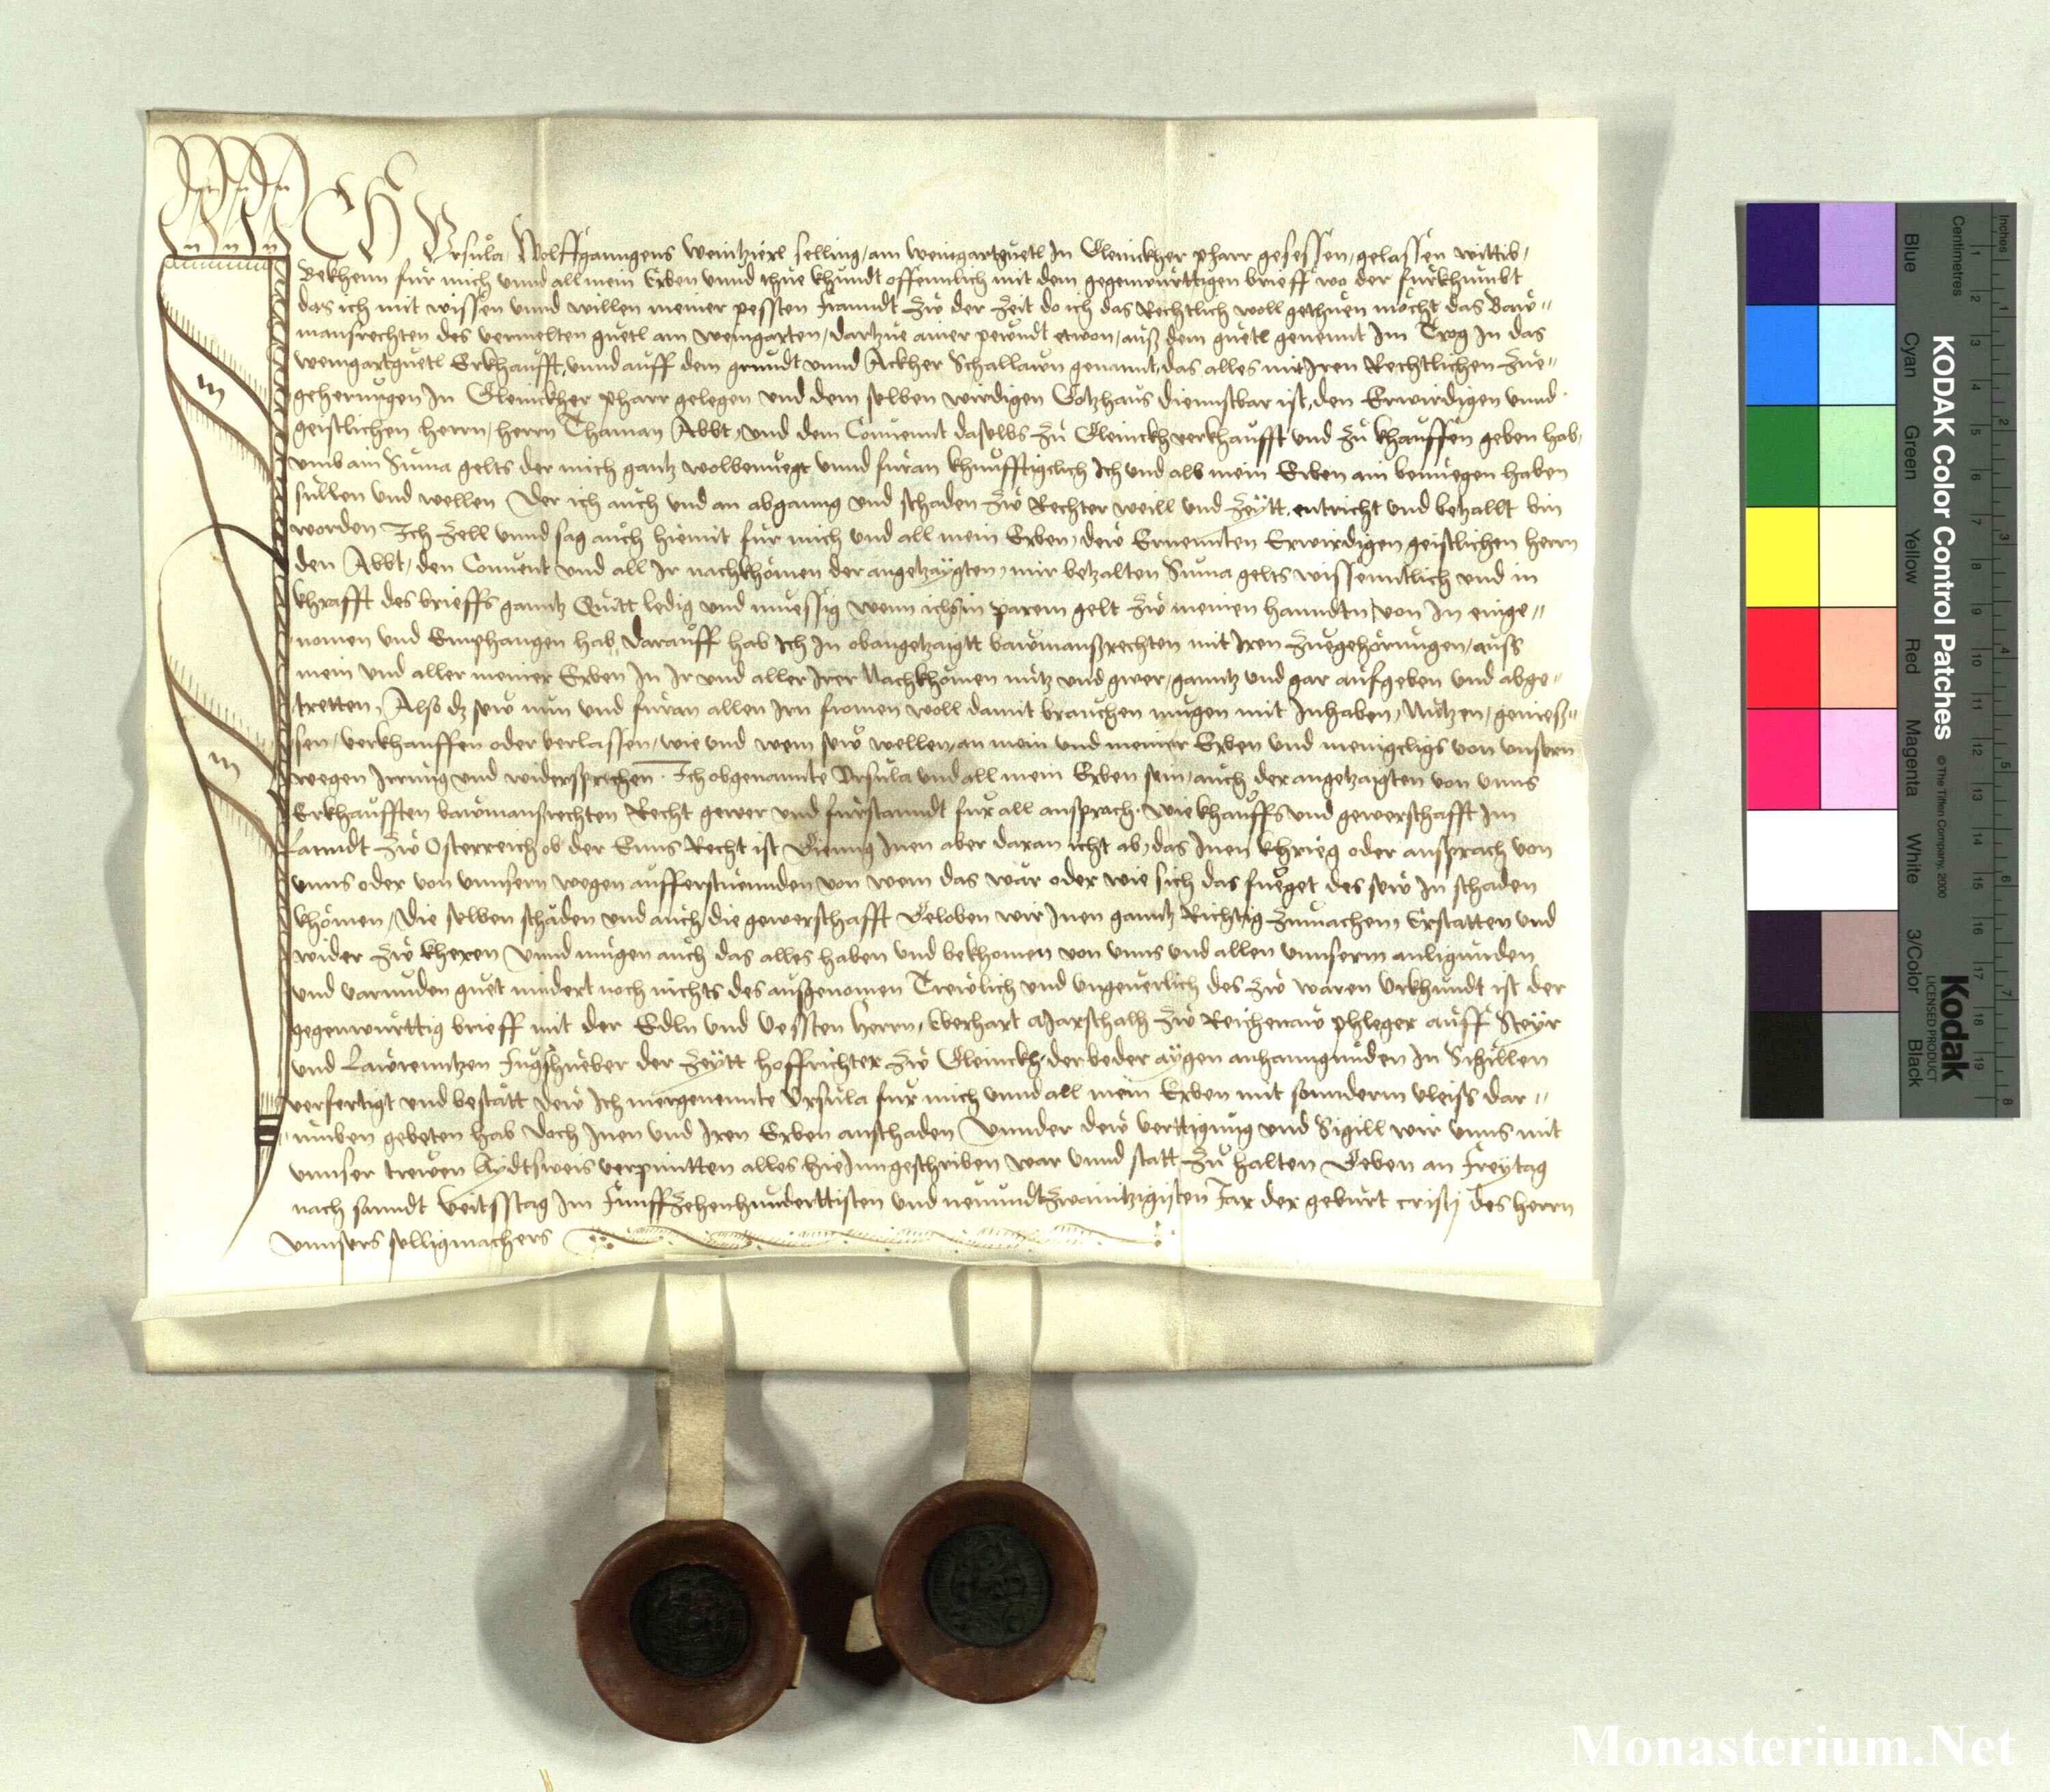 ICH Vrsula Wolffganngens Weintzierl selling, am Weingartguetl In Gleinckher pharr gesessen, gelassen wittib,
Bekhenn für mich vnnd all mein Erben vnnd thue khundt offennlich mit dem gegenwürttigen brieff wo der fürkhumbt
das ich mit wissen vnnd willen meiner pessten frundt Zw der Zeit do ich das Rechtlich woll gethuen möcht das Baw-
mansrechten des vermelten guetl am weingarten, dartzue ainer pewndt etwon, auß dem guetl genennt Im Trog In das
weingartguetl Erkhaufft, vnnd auff dem grundt vnnd Ackher Schallawn genannt, das alles mit Iren Rechtlichen Zue-
geherungen In Gleinckher pharr gelegen vnd dem selben wirdigen Gotzhaus diennstbar ist, den Erwirdigen vnnd
geistlichen herrn, herrn Thaman Abbt, vnd dem Conuennt daselbs zu Gleinckh verkhaufft vnd zu khauffen geben hab,
vmb ain Suma gelts der mich gantz wolbenuegt vnnd füran khnufftigclich Ich vnd all mein Erben ain benuegen haben
sullen vnd wellen Der ich auch vnd an abganng vnd schaden Zw Rechter weill vnd Zeytt, entricht vnd betzallt bin
worden Ich Zell vnnd sag auch hiemit für mich vnd all mein Erben, dew Ernennten Erwirdigen geistlichen herrn
den Abbt, den Conuent vnd all Ir nachkhömen der angetzaygten, mir betzalten Suma gelts wissenntlich vnd in
khrafft des brieffs ganntz Quitt ledig vnd muessig wenn ichs in parem gelt Zw meinen hanndtn, von In einge-
nomen vnd Emphangen hab, Darauff hab Ich In obangetzaigtt bawmanßrechten mit Iren Zuegehörungen, auss
mein vnd aller meiner Erben In Ir vnd aller Irer Nachkhömen nutz vnd gwer, ganntz vnd gar aufgeben vnd abge-
tretten, Also dz sew nun vnd füran allen Irn fromen woll damit brauchen mugen mit Inhaben, Nutzen, genieß-
sen, verkhauffen oder verlassen, wie vnd wem sew wellen, an mein vnd meiner Erben vnd menigcligs von vnsern
wegen Irrung vnd widersprechen. Ich obgenannte Vrsula vnd all mein Erben sein, auch der angetzaigten von vnns
Erkhaufften bawmanßrechten Recht gewer vnd fürstanndt für all ansprach, wie khauffs vnd gewerschafft Im
Lanndt Zw Osterreich ob der Enns Recht ist Gienng Inen aber daran icht ab, das Inen khrieg oder ansprach von
vnns oder von vnnsern wegen aufferstuennden von wem das wär oder wie sich das fueget des sew In schaden
khömen, Die selben schäden vnd auch die gewerschafft Geloben wir Inen ganntz Richtig Zumachem Erstatten vnd
wider Zw kheren Vnnd mugen auch das alles haben vnd bekhomen von vnns vnd allen vnnserm anligunden
vnd varunden guet nindert noch nichts des außgenomen Trewlich vnd vngeuerlich des Zw waren Vrkhundt ist der
gegenwürttig brieff mit der Edln vnd Vessten herrn, Eberhart Marschalh Zw Reichenaw phleger auff Steyr
vnd Lawrenntzen Fugshueber der Zeytt hoffrichter Zw Gleinckh, der beder aygen anhanngunden In Sigillen
verfertigt vnd bestätt dew Ich mergenennte Vrsula für mich vnnd all mein Erben mit sonnderm vleiss dar-
umben gebeten hab doch Inen vnd Iren Erben anschaden Vnnder dew verttigung vnd Sigill wir vnns mit
vnnser trewen Aydtsweis verpuntten alles hieInngeschriben war vnnd statt Zu halten Geben an Freytag
nach sanndt Veitsstag Im Funffzehenhunderttisten vnd newundzwainntzigisten Jar der geburt cristj des herrn
vnnsers selligmachers
KODAK Color Control Patches
© The Tiffen Company, 2000
Kodak
LICENSED PRODUCT
Inches
Centimetres
1 2 3 4 5 6 7 8
1 2 3 4 5 6 7 8 9 10 11 12 13 14 15 16 17 18 19
Blue
Cyan
Green
Yellow
Red
Magenta
White
3/Color
Black
Monasterium.Net